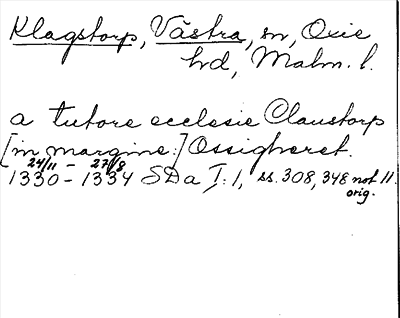 Klagstorp, Västra, sn, Oxie
hd, Malm. l.
a tutore ecclesie Claustorp
[in margine:] Ossigheret.
24/11 - 27/8
1330 - 1334 SDa I:1, ss. 308, 348 not 11.
orig.